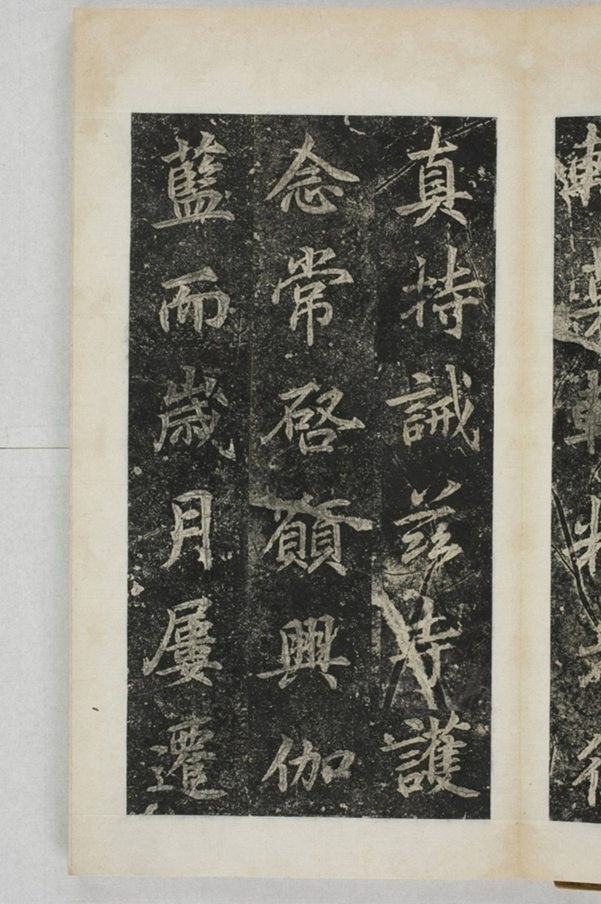 真持誡茲寺護
念常啓願興伽
藍而歲月屢遷